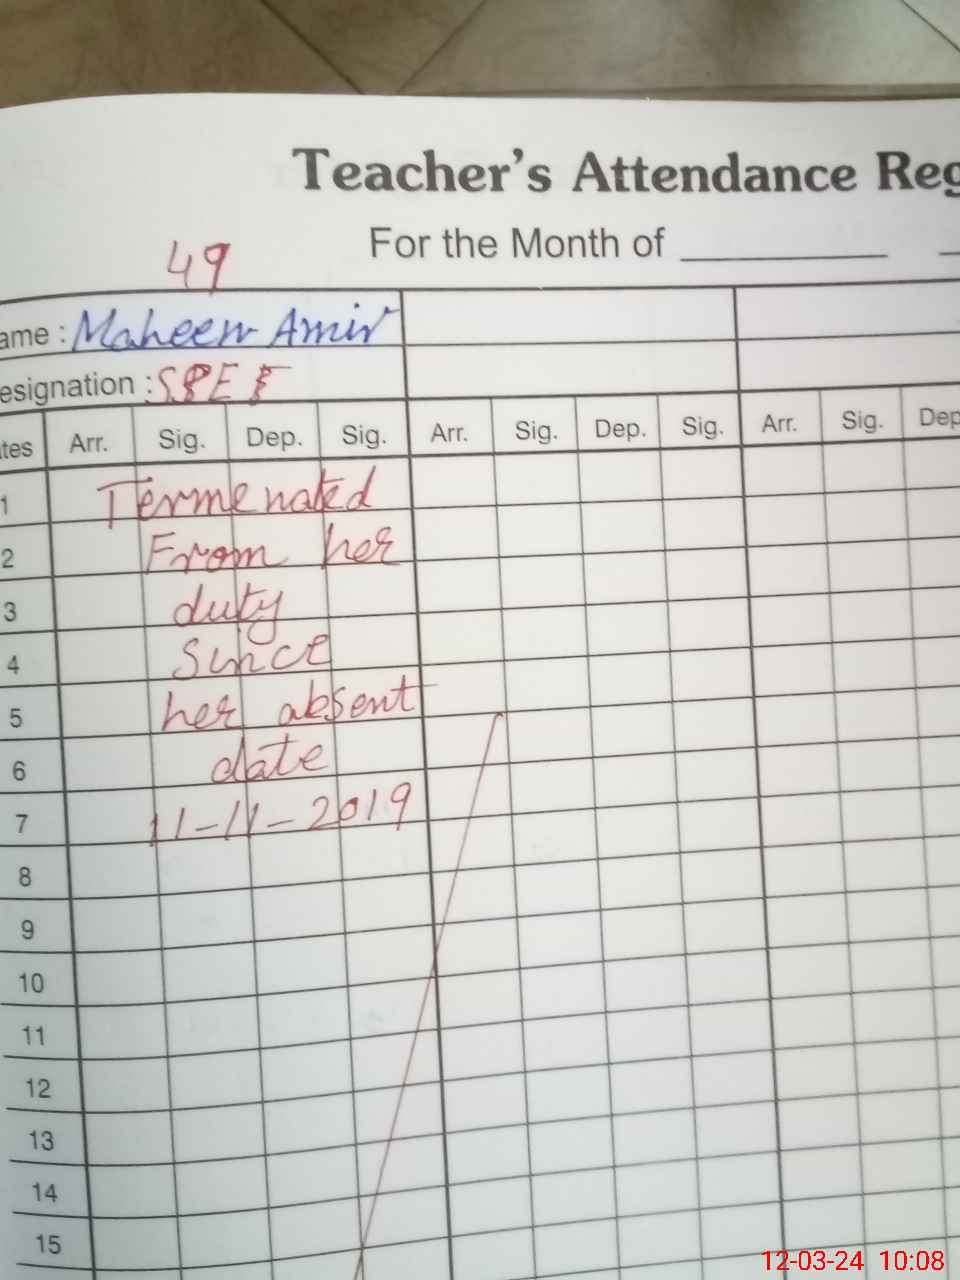 Teacher's Attendance Reg
For the Month of
49
ame : Maheen Amir
esignation : SPE
tes Arr. Sig. Dep. Sig. Arr. Sig. Dep. Sig. Arr. Sig. Dep
1 Termenated
2 From her
3 duty
4 Since
5 her absent
6 date
7 11-11-2019
8
9
10
11
12
13
14
15
12-03-24 10:08